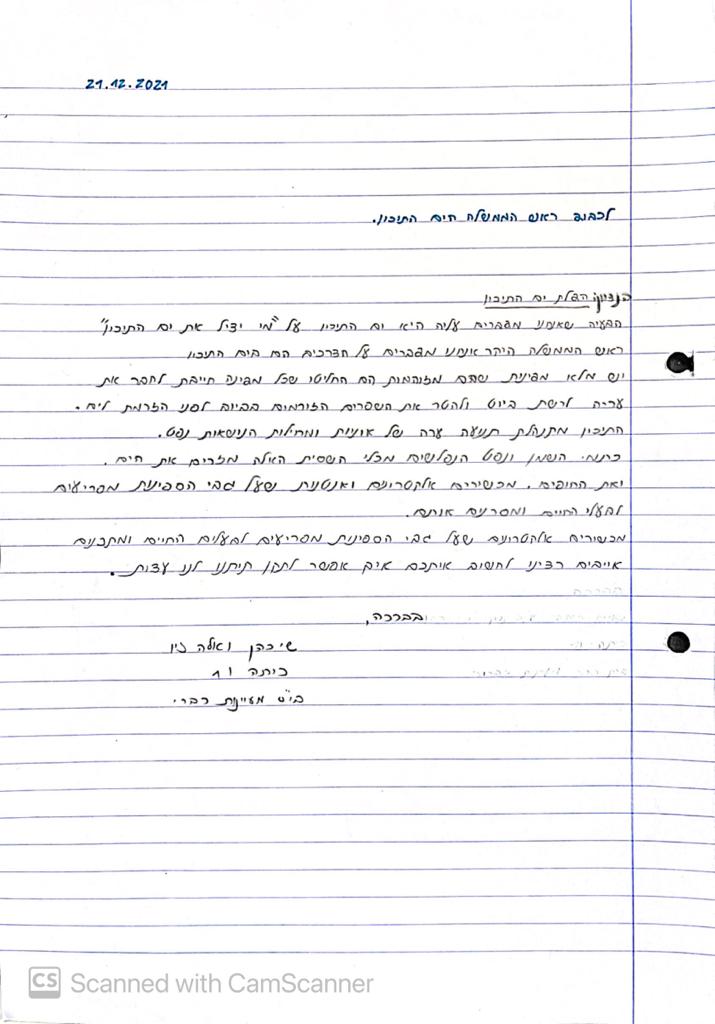 21.12.2021
לכבוד ראש הממשלה הים התיכון.
הנדון: הצלת ים התיכון
הבעיה שאנחנו מדברים עליה היא ים התיכון על "מי יציל את ים התיכון"
ראש הממשלה היקר אנחנו מדברים על הצרכים הם בים התיכון
יש מלא מדינות שהם מזוהמות הם החליטו שכל מדינה חייבת לחבר את
עריה לרשת ביוב ולהטר את השפכים הזורמים בביוב לפני הזרמת לים.
התיכון מתנהלת תנועה ערה של אוניות ומכלית הנישאות נפט.
השמן ונפט הנפלשים מכלי השסית האלה מזהרים את הים.
ואת החופים. מכשירים אלקטרונים ואנטנות שעל גבי הספינות מפריעים
לבעלי החיים ומסרנים אותם.
מכשירים אלקטרונים שעל גבי הספינות מפריעים לבעלים החיים ומתכנים
אייבים רצינו לחשוב איתכם איך אפשר לתקן תיתנו לנו עצות.
בברכה,
שי כהן ואלה זיו
כיתה ו 1
בי"ס מעיינות דברי
CS Scanned with CamScanner